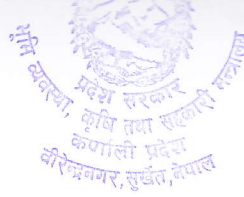 भूमि व्यवस्था, कृषि तथा सहकारी मन्त्रालय
प्रदेश सरकार
कर्णाली प्रदेश
वीरेन्द्रनगर, सुर्खेत, नेपाल